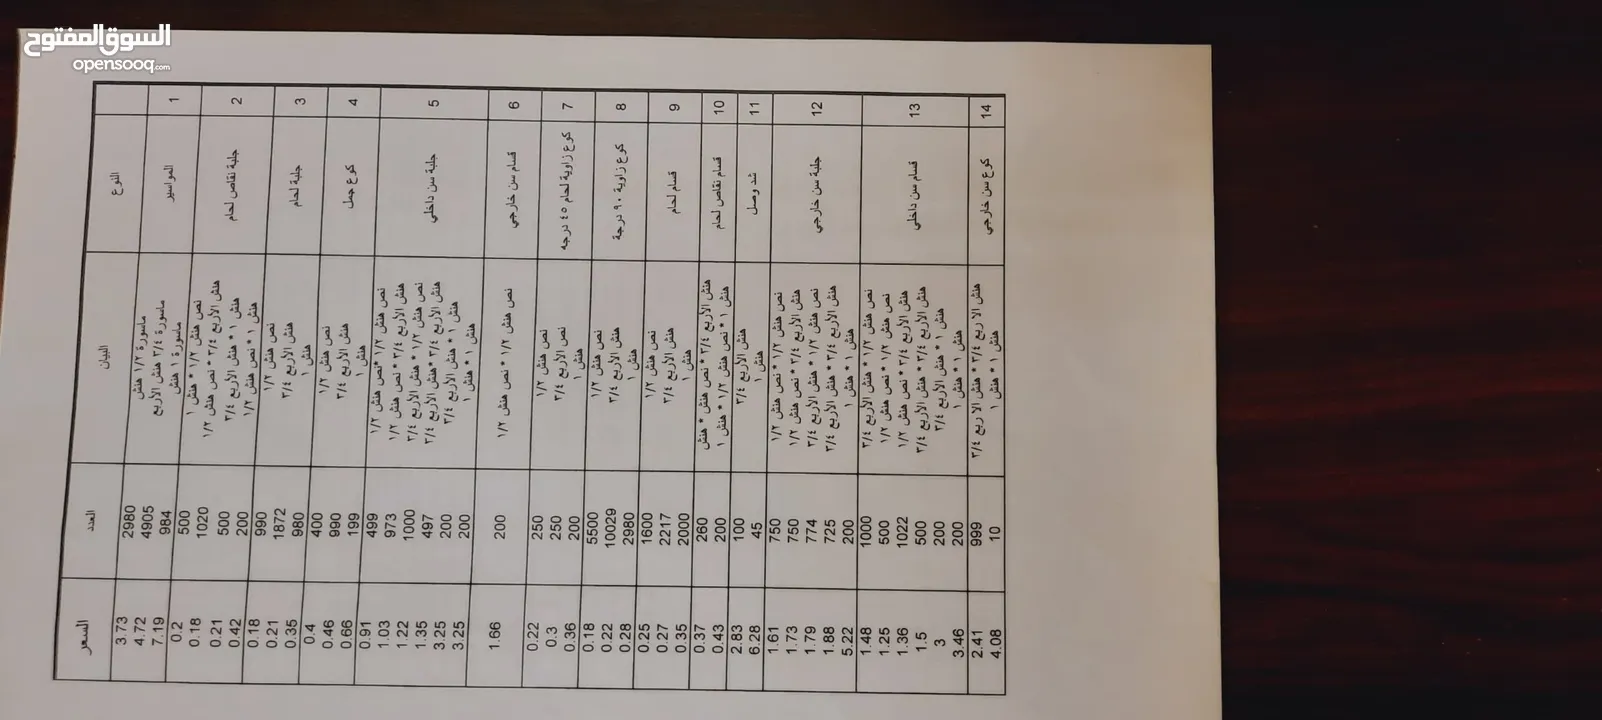 السوق المفتوح
opensooq.com
النوع البيان العدد السعر
1 المواسير ماسورة ١/٢ هنش 2980 3.73
ماسورة ٣/٤ هنش الأربع 4905 4.72
ماسورة ١ هنش 984 7.19
2 جلبة نقاص لحام نص هنش ١/٢ * هنش ١ 500 0.2
هنش الأربع ٣/٤ * نص هنش ١/٢ 1020 0.18
هنش ١ * هنش الأربع ٣/٤ 500 0.21
هنش ١ * نص هنش ١/٢ 200 0.42
3 جلبة لحام نص هنش ١/٢ 990 0.18
هنش الأربع ٣/٤ 1872 0.21
هنش ١ 980 0.35
4 كوع جمل نص هنش ١/٢ 400 0.4
هنش الأربع ٣/٤ 990 0.46
هنش ١ 199 0.66
5 جلبة سن داخلي نص هنش ١/٢ *نص هنش ١/٢ 499 0.91
هنش الأربع ٣/٤ * نص هنش ١/٢ 973 1.03
نص هنش ١/٢ * هنش الأربع ٣/٤ 1000 1.22
هنش الأربع ٣/٤ *هنش الأربع ٣/٤ 497 1.35
هنش ١ * هنش الأربع ٣/٤ 200 3.25
هنش ١ * هنش ١ 200 3.25
6 قسام سن خارجي نص هنش ١/٢ * نص هنش ١/٢ 200 1.66
7 كوع زاوية لحام ٤٥ درجه نص هنش ١/٢ 250 0.22
نص الأربع ٣/٤ 250 0.3
هنش ١ 200 0.36
8 كوع زاوية ٩٠ درجة نص هنش ١/٢ 5500 0.18
هنش الأربع ٣/٤ 10029 0.22
هنش ١ 2980 0.28
9 قسام لحام نص هنش ١/٢ 1600 0.25
هنش الأربع ٣/٤ 2217 0.27
هنش ١ 2000 0.35
10 قسام نقاص لحام هنش الأربع ٣/٤ * نص هنش * هنش 260 0.37
هنش ١ * نص هنش ١/٢ * هنش ١ 200 0.43
11 شد وصل هنش الأربع ٣/٤ 100 2.83
هنش ١ 45 6.28
12 جلبة سن خارجي نص هنش ١/٢ * نص هنش ١/٢ 750 1.61
هنش الأربع ٣/٤ * نص هنش ١/٢ 750 1.73
نص هنش ١/٢ * هنش الأربع ٣/٤ 774 1.79
هنش الأربع ٣/٤ * هنش الأربع ٣/٤ 725 1.88
هنش ١ * هنش ١ 200 5.22
13 قسام سن داخلي نص هنش ١/٢ * هنش الأربع ٣/٤ 1000 1.48
نص هنش ١/٢ * نص هنش ١/٢ 500 1.25
هنش الأربع ٣/٤ * نص هنش ١/٢ 1022 1.36
هنش الأربع ٣/٤ * هنش الأربع ٣/٤ 500 1.5
هنش ١ * هنش الأربع ٣/٤ 200 3
هنش ١ * هنش ١ 200 3.46
14 كوع سن خارجي هنش الا ربع ٣/٤ * نص هنش الا ربع ٣/٤ 999 2.41
هنش ١ * هنش ١ 10 4.08